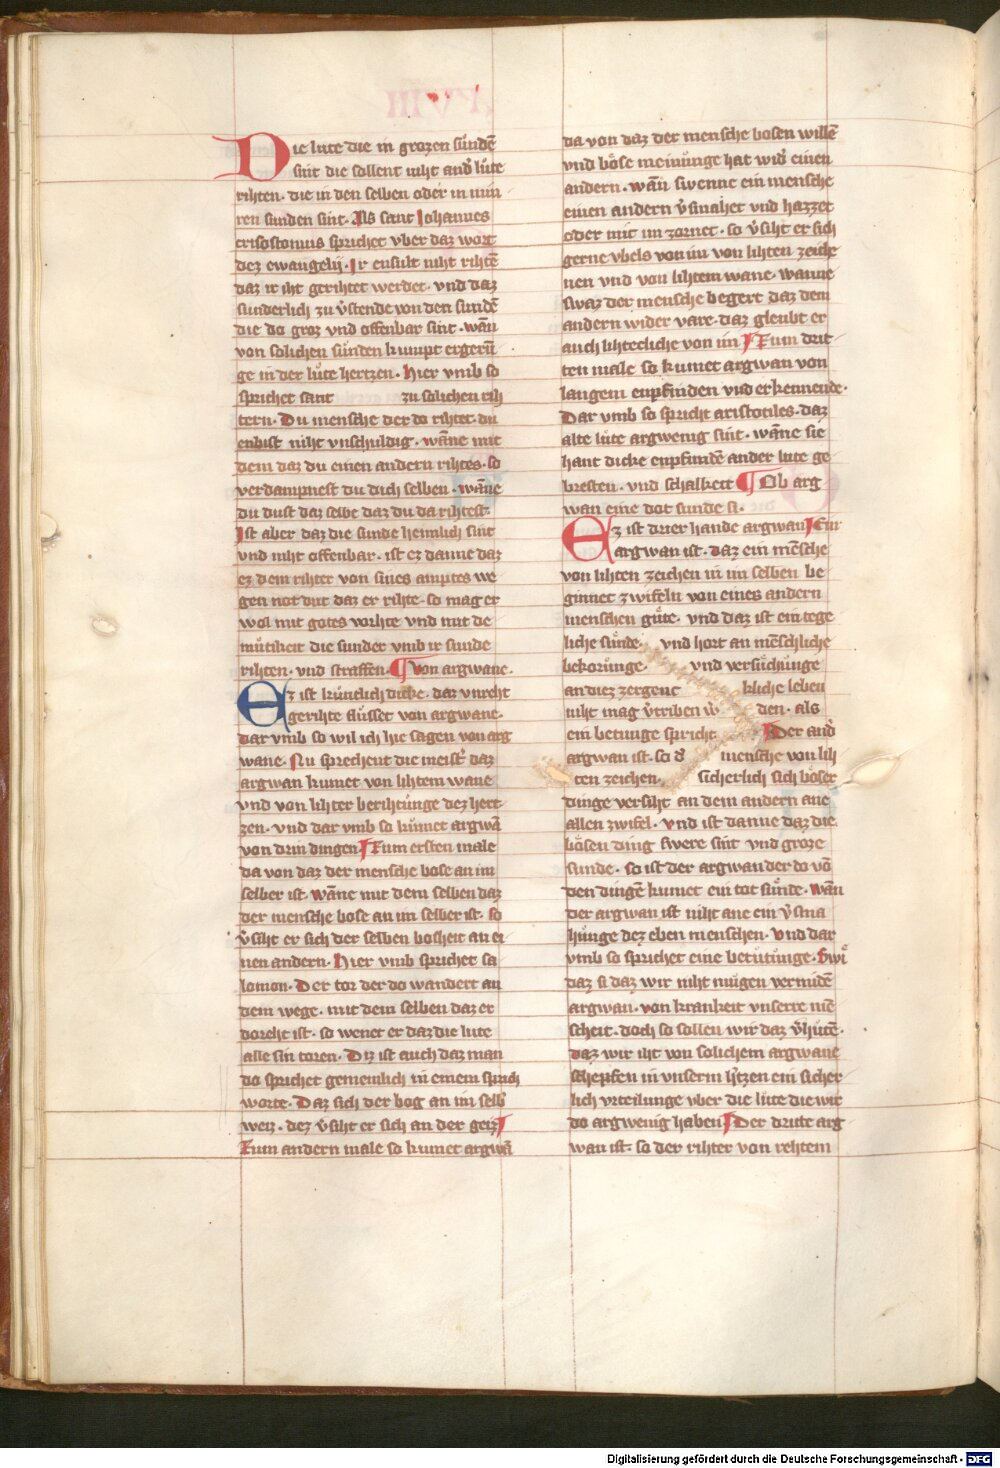 Die lute die in grozen sündē
sint die sollent niht and̾ lute
rihten · die in den selben oder in min
ren sunden sint · Als sant Johannes
crisostomus sprichet vber daz wort
dez ewangelij · Ir ensult niht rihtē
daz ir iht gerihtet werdet · vnd daz
sunderlich zu v̾stende von den sundē
die do groz vnd offenbar sint · wāɴ
von solichen sünden kumpt ergerū
ge in der lute hertzen · Hier vmb so
sprichet sant zu solichen rih
tern · Du mensche der do rihtet · du
enbist niht vnschuldig · wāne mit
dem daz du einen andern rihtes · so
verdampnest du dich selben · wāne
du dust daz selbe daz du da rihtest ·
Ist aber daz die sunde heimlich sint
vnd niht offenbar · ist ez danne daz
ez dem rihter von sines amptes we
gen not dut daz er rihte · so mag er
wol mit gotes vorhte vnd mit de
mütikeit die sunder vmb ir sunde
rihten · vnd straffen · ¶ Von argwane ·
Ez ist künclich dicke · daz vnreht
gerihte flüsset von argwane ·
dar vmb so wil ich hie sagen von arg
wane · Nu sprechent die meist̾ daz
argwan kumet von lihtem wane
vnd von lihter berihtunge dez hert
zen · vnd dar vmb so kumet argwā
von drin dingen · Zum ersten male
da von daz der mensche bose an im
selber ist · wāne mit dem selben daz
der mensche bose an im selber ist · so
v̾siht er sich der selben bosheit an ei
nen andern · Hier vmb sprichet sa
lomon · Der tor der do wandert an
dem wege · mit dem selben daz er
doreht ist · so wenet er daz die lute
alle sin toren · Diz ist auch daz man
do sprichet gemeinlich in einem sprich
worte · Daz sich der bog an im selb̾
weiz · dez v̾siht er sich an der geiz
Zum andern male so kumet argwā
da von daz der mensche bosen willē
vnd böse meinunge hat wid̾ einen
andern · wāɴ swenne ein mensche
einen andern v̾smahet vnd hazzet
oder mit im zornet · so v̾siht er sich
gerne vbels von im von lihten zeich
nen vnd von lihtem wane · wanne
swaz der mensche begert daz dem
andern wider vare · daz gleubt er
auch lihtecliche von im Zum drit
ten male so kumet argwan von
langem enpfinden vnd erkennende ·
Dar vmb so spricht aristotiles · daz
alte lute argwenig sint · wāne sie
hant dicke enpfundē ander lute ge
bresten · vnd schalkeit ¶ Ob arg
wan eine dot sunde si ·
Ez ist drier hande argwan Ein
argwan ist · daz ein mēsche
von lihten zeichen in im selben be
ginnet zwifeln von eines andern
menschen güte · vnd daz ist ein tege
liche sünde · vnd hort an mēschliche
bekorunge · vnd versuchunge
an diez zergenc kliche leben
niht mag v̾triben w̾ den · als
ein betunge spricht Der and̾
argwan ist · so d̾ mensche von lih
ten zeichen sicherlich sich böser
dinge versiht an dem andern ane
allen zwifel · vnd ist danne daz die
bösen ding swere sint vnd groze
sunde · so ist der argwan der do vō
den dingē kumet ein tot sünde · wāɴ
der argwan ist niht ane ein v̾sma
hunge dez eben menschen · vnd dar
vmb so sprichet eine betutunge · Swi
daz si daz wir niht mugen vermidē
argwan · von krankeit vnserre mē
scheit · doch so sollen wir daz v̾hutē ·
daz wir iht von solichem argwane
schepfen in vnserm h̾tzen ein sicher
lich vrteilunge vber die lute die wir
do argwenig haben Der dritte arg
wan ist · so der rihter von rehtem
Digitalisierung gefördert durch die Deutsche Forschungsgemeinschaft - DFG